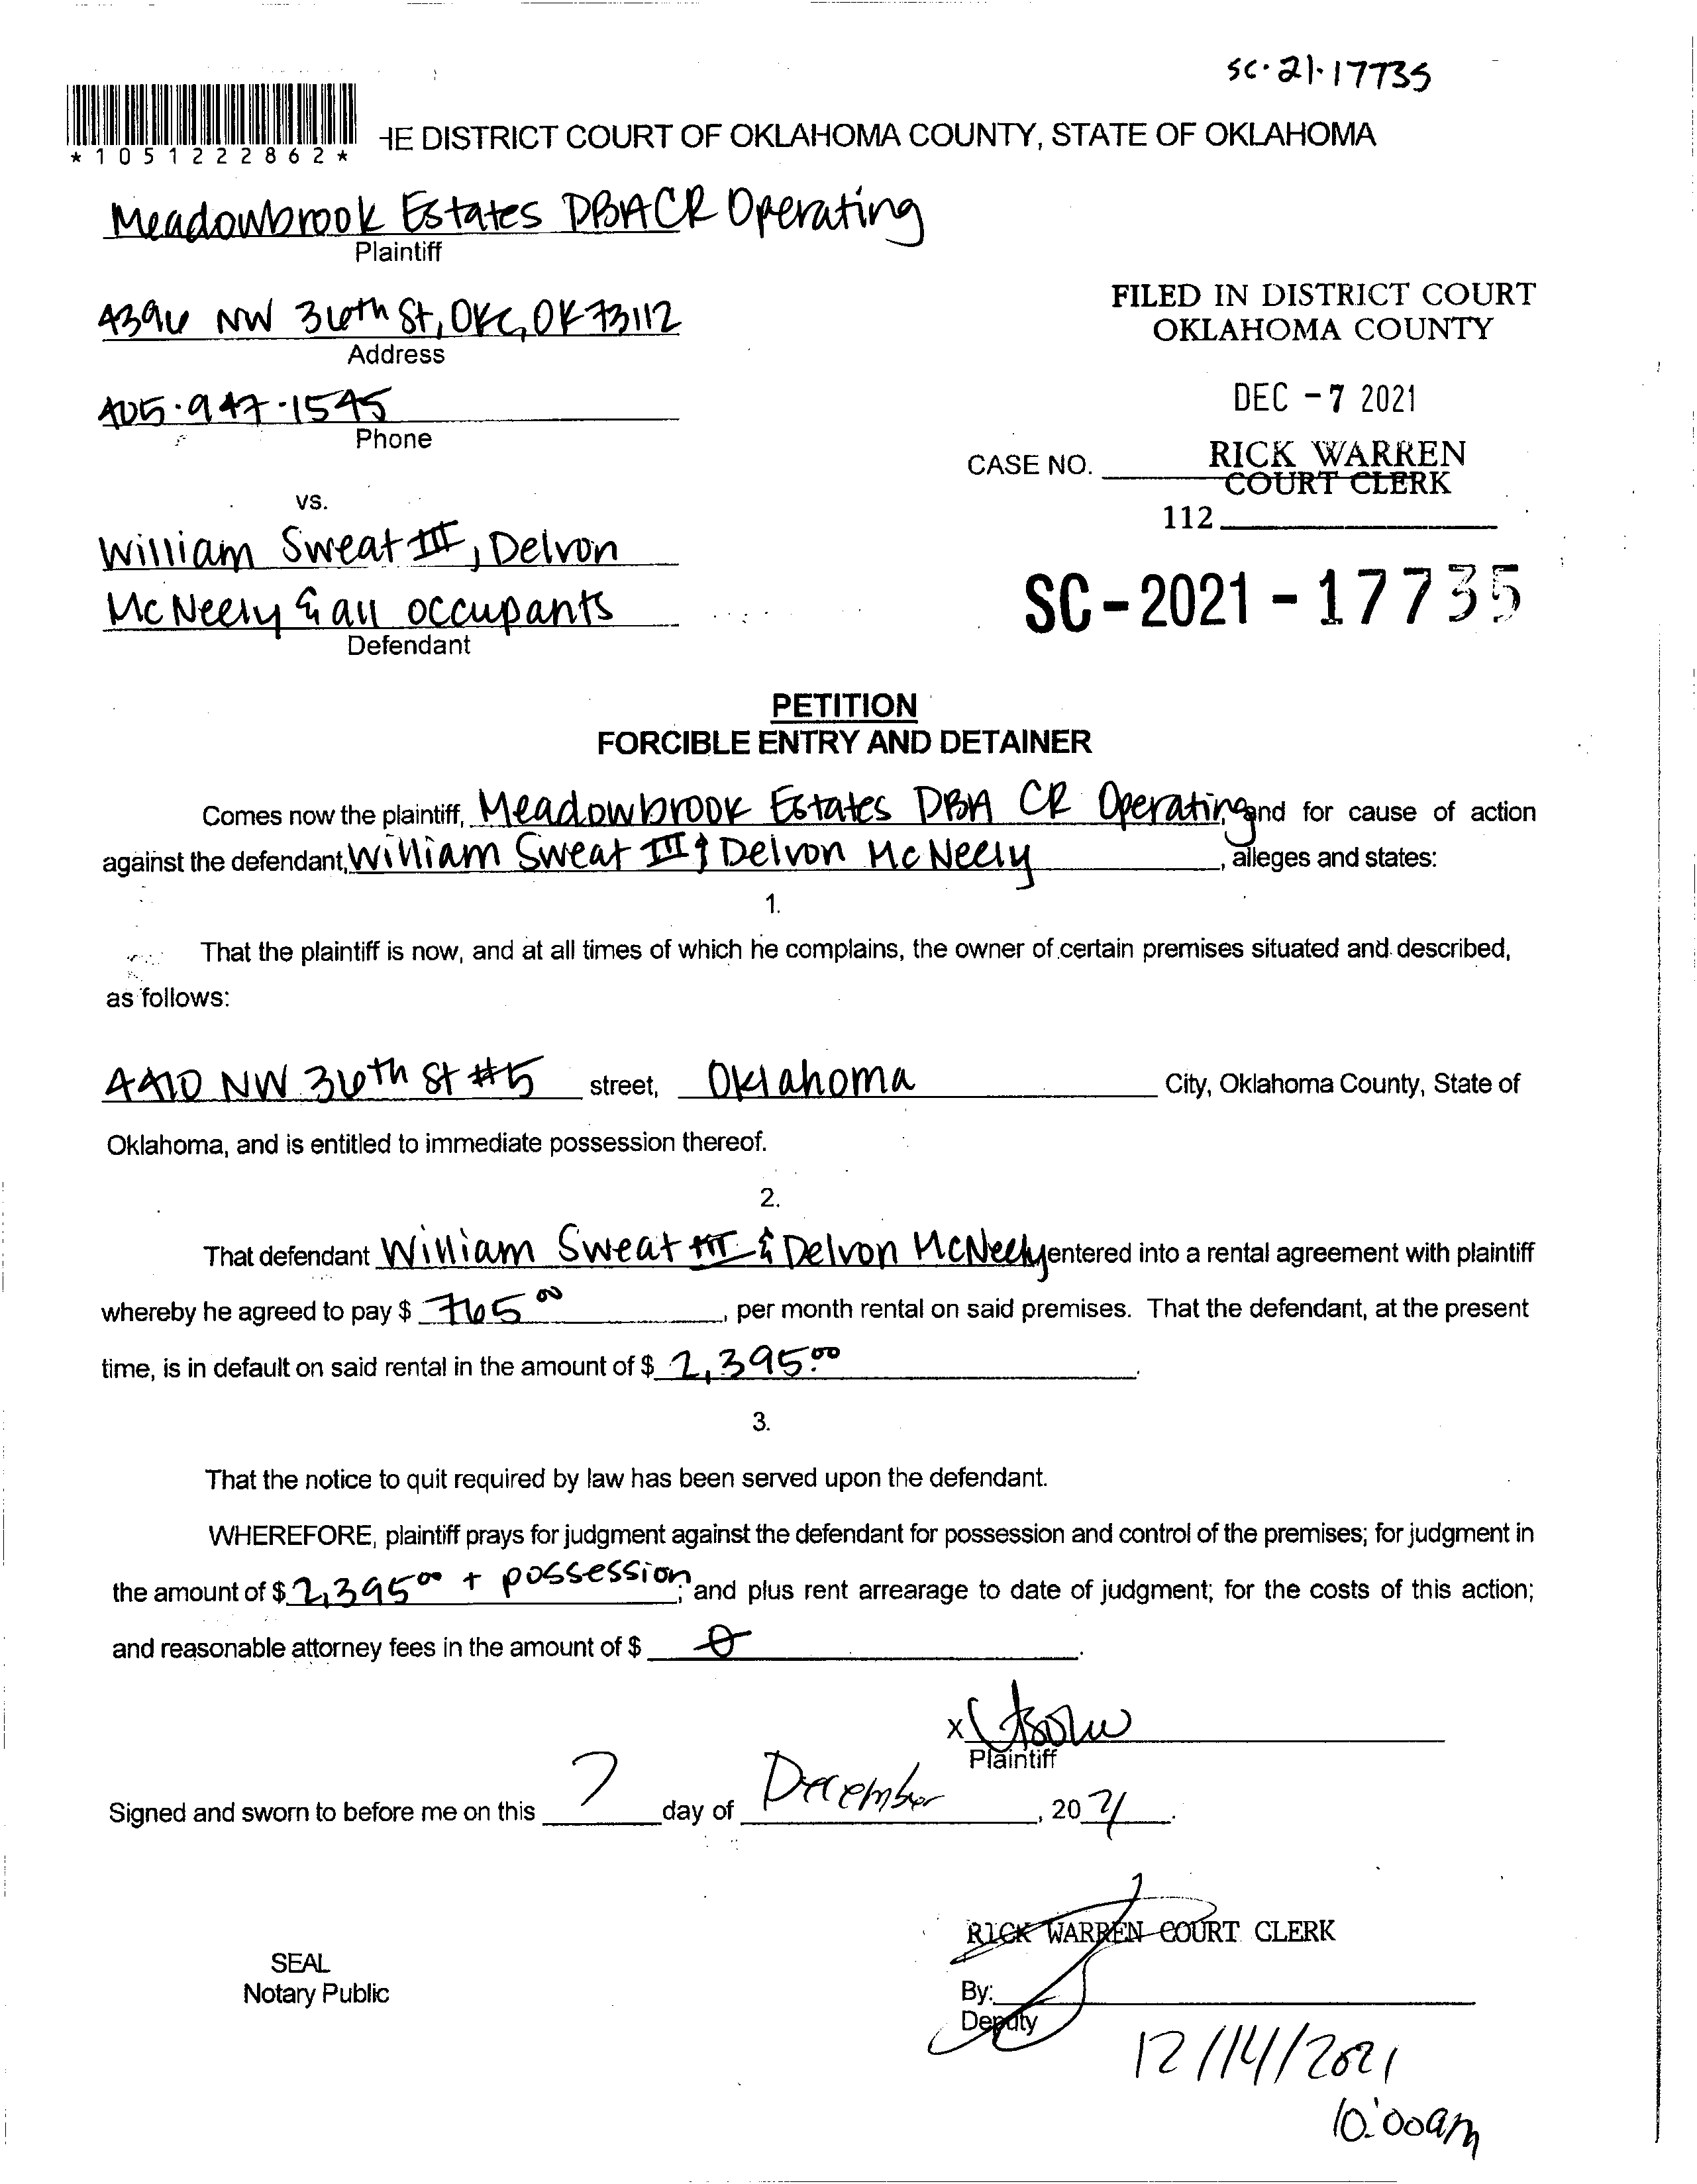 SC·21·17735
*1051222862*
HE DISTRICT COURT OF OKLAHOMA COUNTY, STATE OF OKLAHOMA
Meadowbrook Estates DBA CR Operating
Plaintiff
4396 NW 36th St, OKC, OK 73112
Address
FILED IN DISTRICT COURT
OKLAHOMA COUNTY
405·947·1545
Phone
DEC -7 2021
CASE NO.
RICK WARREN
COURT CLERK
112
vs.
William Sweat III, Delvon
McNeely & all occupants
Defendant
SC-2021-17735
PETITION
FORCIBLE ENTRY AND DETAINER
Comes now the plaintiff, Meadowbrook Estates DBA CR Operating and for cause of action
against the defendant, William Sweat III & Delvon McNeely, alleges and states:
1.
That the plaintiff is now, and at all times of which he complains, the owner of certain premises situated and described,
as follows:
4410 NW 36th St #5 street, Oklahoma City, Oklahoma County, State of
Oklahoma, and is entitled to immediate possession thereof.
2.
That defendant William Sweat III & Delvon McNeely entered into a rental agreement with plaintiff
whereby he agreed to pay $ 765.00, per month rental on said premises. That the defendant, at the present
time, is in default on said rental in the amount of $ 2,395.00.
3.
That the notice to quit required by law has been served upon the defendant.
WHEREFORE, plaintiff prays for judgment against the defendant for possession and control of the premises; for judgment in
the amount of $ 2,395 00 + possession; and plus rent arrearage to date of judgment; for the costs of this action;
and reasonable attorney fees in the amount of $ 0.
X
Plaintiff
Signed and sworn to before me on this 7 day of December, 2021.
RICK WARREN COURT CLERK
SEAL
Notary Public
By:
Deputy
12/14/2021
10:00am